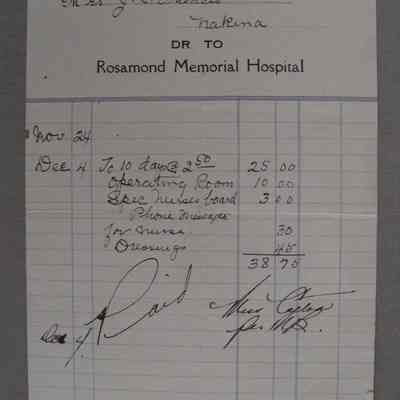 Nakina
DR TO
Rosamond Memorial Hospital
Nov 24
Dec 4 To 10 days @ 2.50 25 00
Operating Room 10 00
Spec nurses board 3 00
Phone messages
for nurse 30
Dressings 45
38 75
Paid
Miss
Dec 4. per